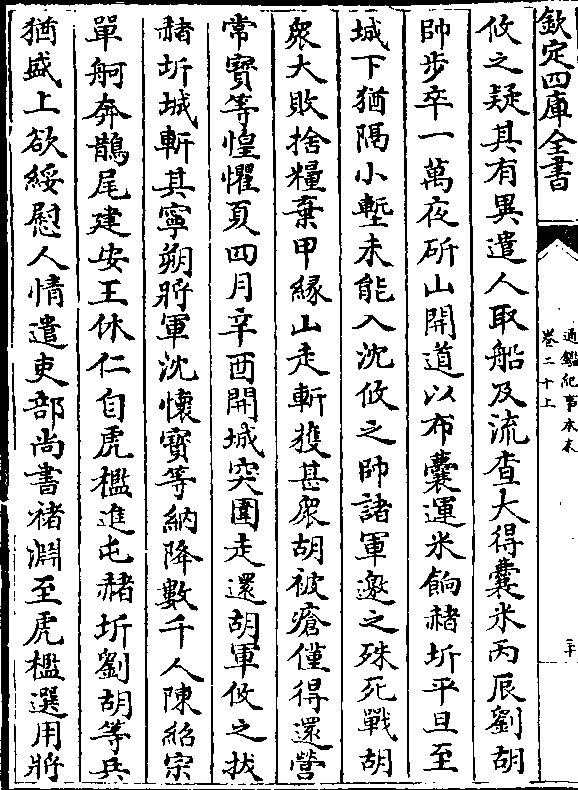 欽定四庫全書
通鑑紀事本末
卷二十上
二十
攸之疑其有異遣人取船及流查大得囊米丙辰劉胡
帥步卒一萬夜斫山開道以布囊運米餉赭圻平旦至
城下猶隔小塹未能入沈攸之帥諸軍邀之殊死戰胡
衆大敗捨糧棄甲緣山走斬獲甚衆胡被瘡僅得還營
常寶等惶懼夏四月辛酉開城突圍走還胡軍攸之拔
赭圻城斬其寧朔將軍沈懷寶等納降數千人陳紹宗
單舸奔鵲尾建安王休仁自虎檻進屯赭圻劉胡等兵
猶盛上欲綏慰人情遣吏部尚書褚淵至虎檻選用將